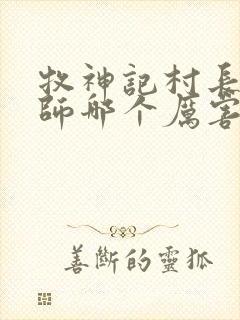 牧神記村長
師哪个厲害
善斷的靈狐